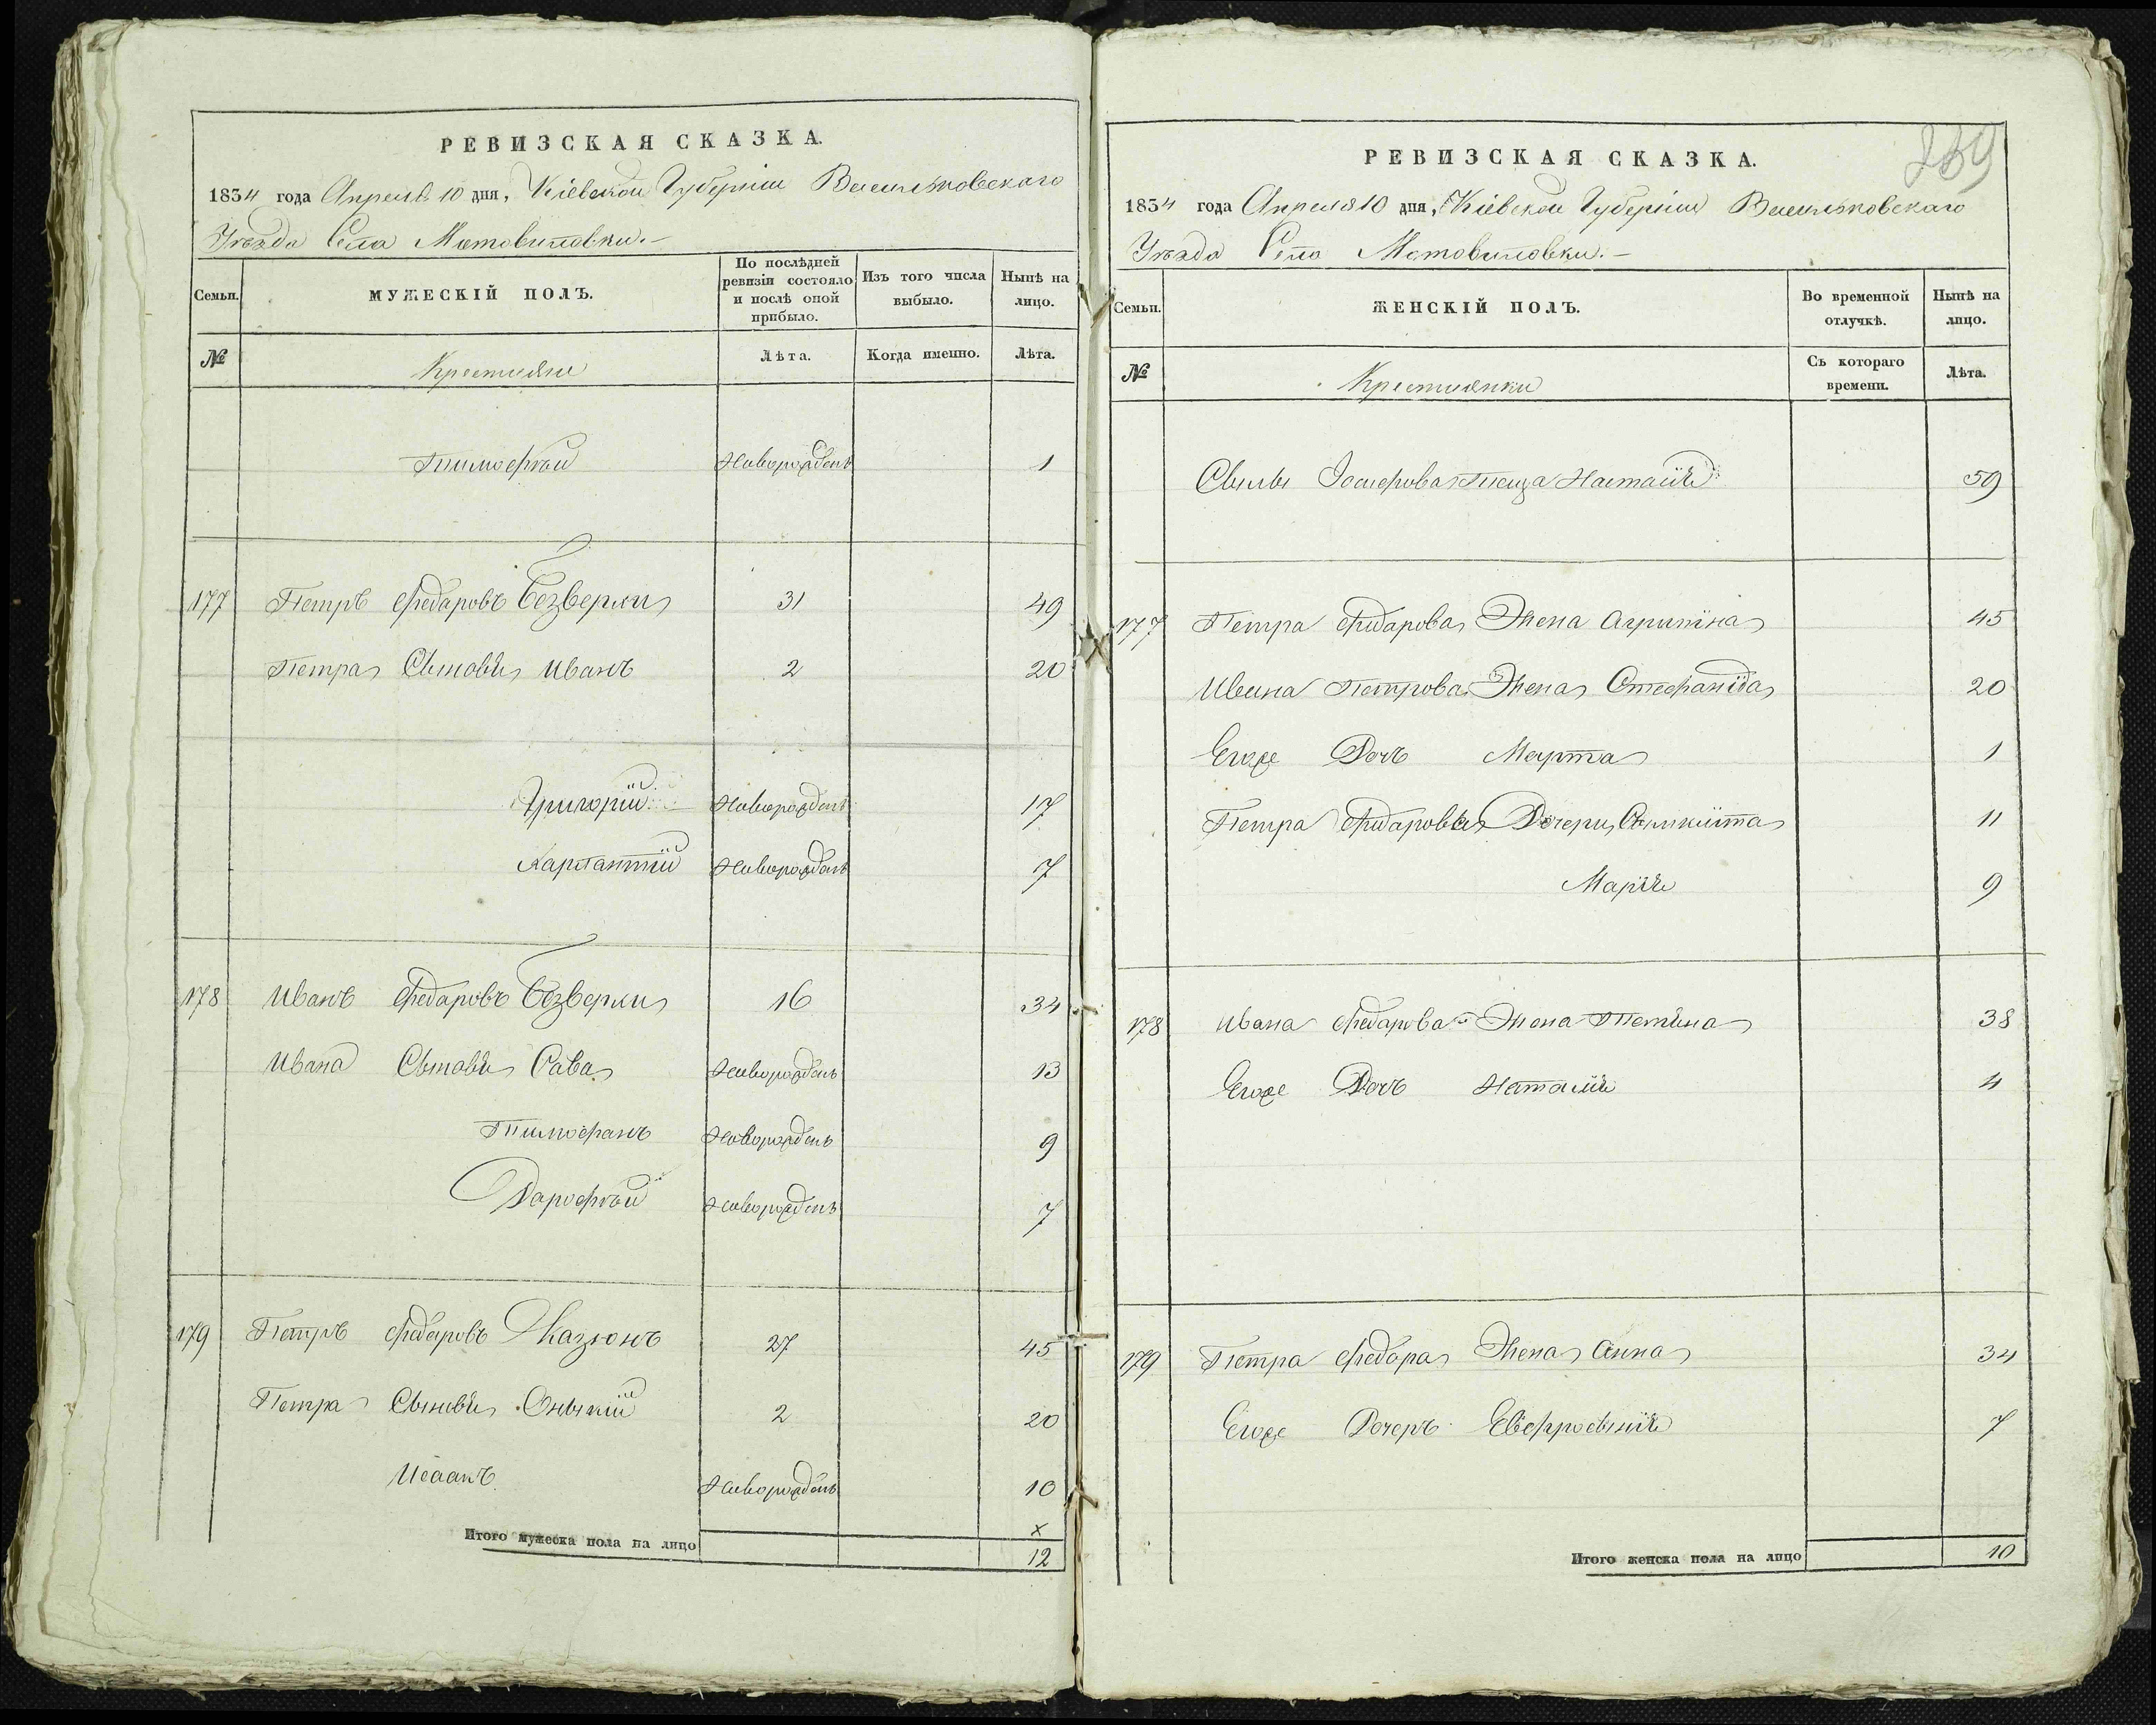 РЕВИЗСКАЯ СКАЗКА.
1834 года Апреля 10 дня, Кіевской Губерніи Васильковскаго
Уѣзда Села Мотовиловки.
Семьи.
МУЖЕСКІЙ ПОЛЪ.
По послѣдней ревизіи состояло и послѣ оной прибыло.
Изъ того числа выбыло.
Нынѣ на лицо.
№
Крестияни
Лѣта.
Когда именно.
Лѣта.
Тимофѣй Новорожденъ 1
177 Петръ Федаровъ Безверхи 31 49
Петра Сыновя Иванъ 2 20
Григорій Новорожденъ 17
Новорожденъ 7
178 Иванъ Федаровъ Безверхи 16 34
Ивана Сыновя Сава Новорожденъ 13
Новорожденъ 9
Дарофѣй Новорожденъ 7
179 Петръ Федаровъ 27 45
Петра Сыновя 2 20
Исаакъ Новорожденъ 10
х
Итого мужеска пола на лицо 12
259
РЕВИЗСКАЯ СКАЗКА.
1834 года Апреля 10 дня, Кіевской Губерніи Васильковскаго
Уѣзда Села Мотовиловки.
Семьи.
ЖЕНСКІЙ ПОЛЪ.
Во временной отлучкѣ.
Нынѣ на лицо.
№
Крестиянки
Съ котораго времени.
Лѣта.
Іосифова Теща Настасія 59
177 Петра Федарова Жена Агрипина 45
Ивана Петрова Жена Стефанида 20
Егоже Доч Марта 1
Петра Федарова Дочери 11
Марія 9
178 Ивана Федарова Жена 38
Егоже Доч Наталія 4
179 Петра Федара Жена Анна 34
Егоже Дочеръ Евфросинія 7
Итого женска пола на лицо 10